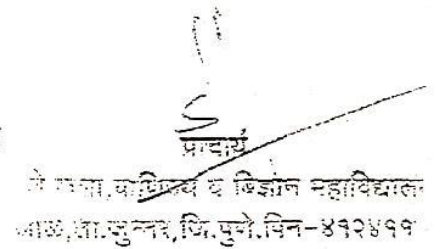 प्राचार्य
वाणिज्य व विज्ञान महाविद्यालय
ता.जुन्नर,जि.पुणे.पिन-४१२४११